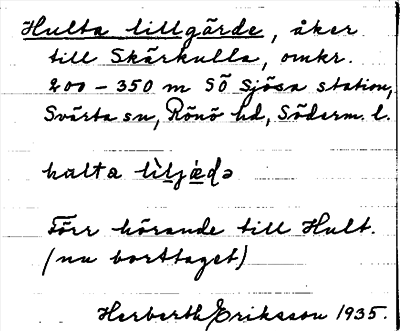 Hulta lillgärde, åker
till Skärkulla, omkr.
200-350 m SÖ Sjösa station,
Svärta sn, Rönö hd, Söderm. l.
Förr hörande till Hult.
(nu borttaget)
Herberth Eriksson 1935.